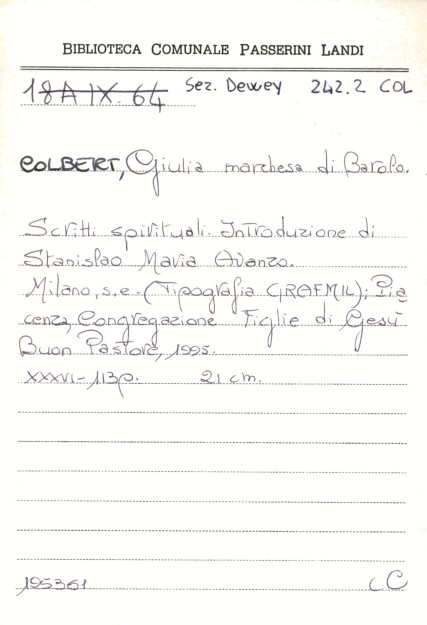 BIBLIOTECA COMUNALE PASSERINI LANDI
18A IX. 64 Sez. Dewey 242.2 COL
COLBERT, Giulia marchesa di Barolo.
Scritti spirituali. Introduzione di
Stanislao Maria Avanzo.
Milano, s.e. (Tipografia GRAFMIL); Pia
cenza, Congregazione Figlie di Gesù
Buon Pastore, 1995.
XXXVI-113p. 21 cm.
195361 C